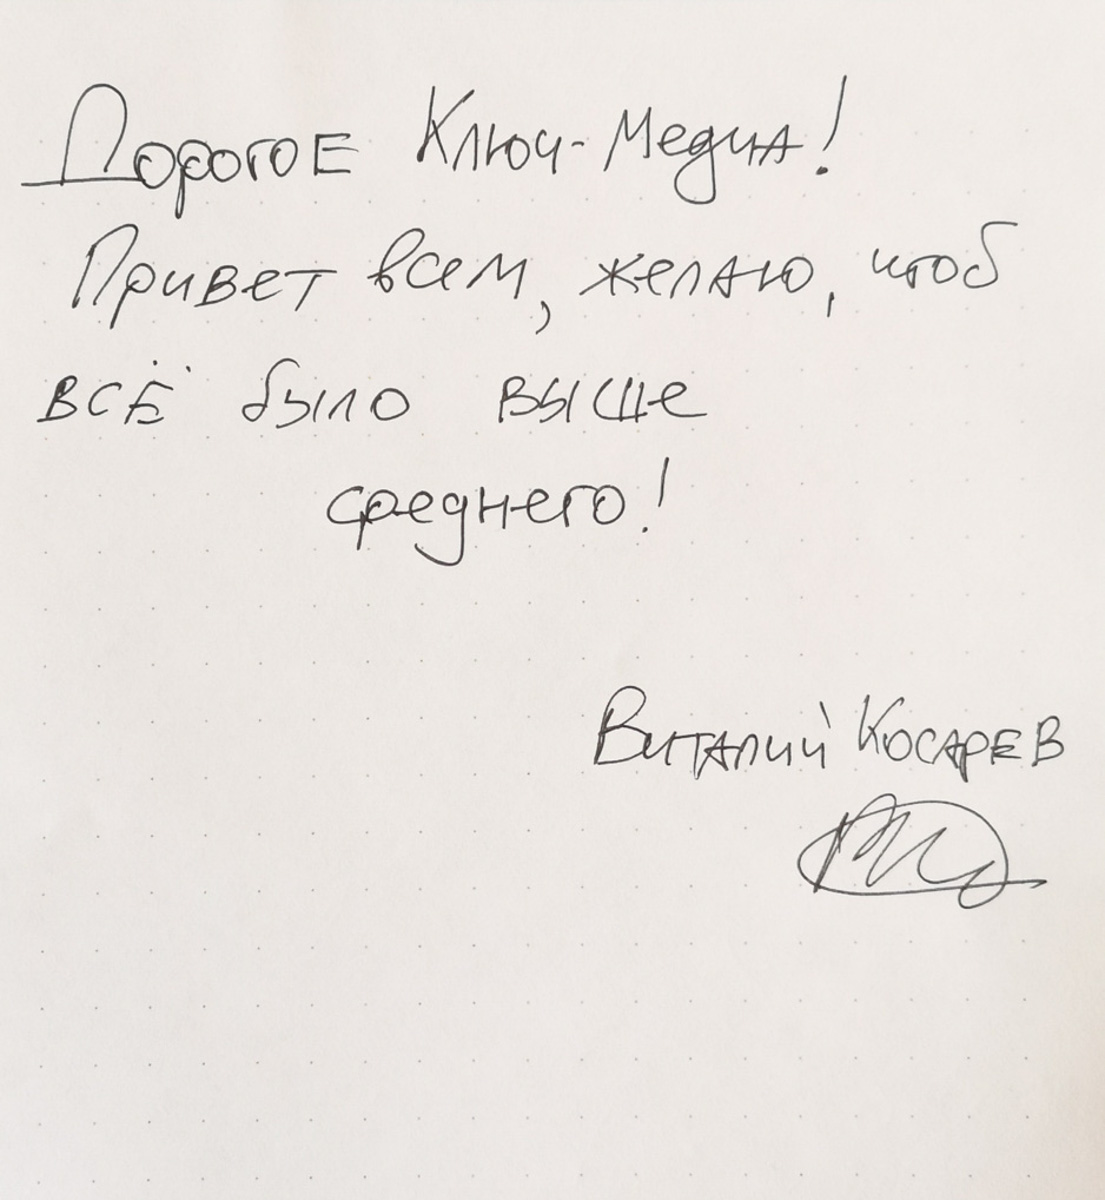 Дорогое Ключ-Медиа!
Привет всем, желаю, чтоб
всё было выше
среднего!
Виталий Косарев